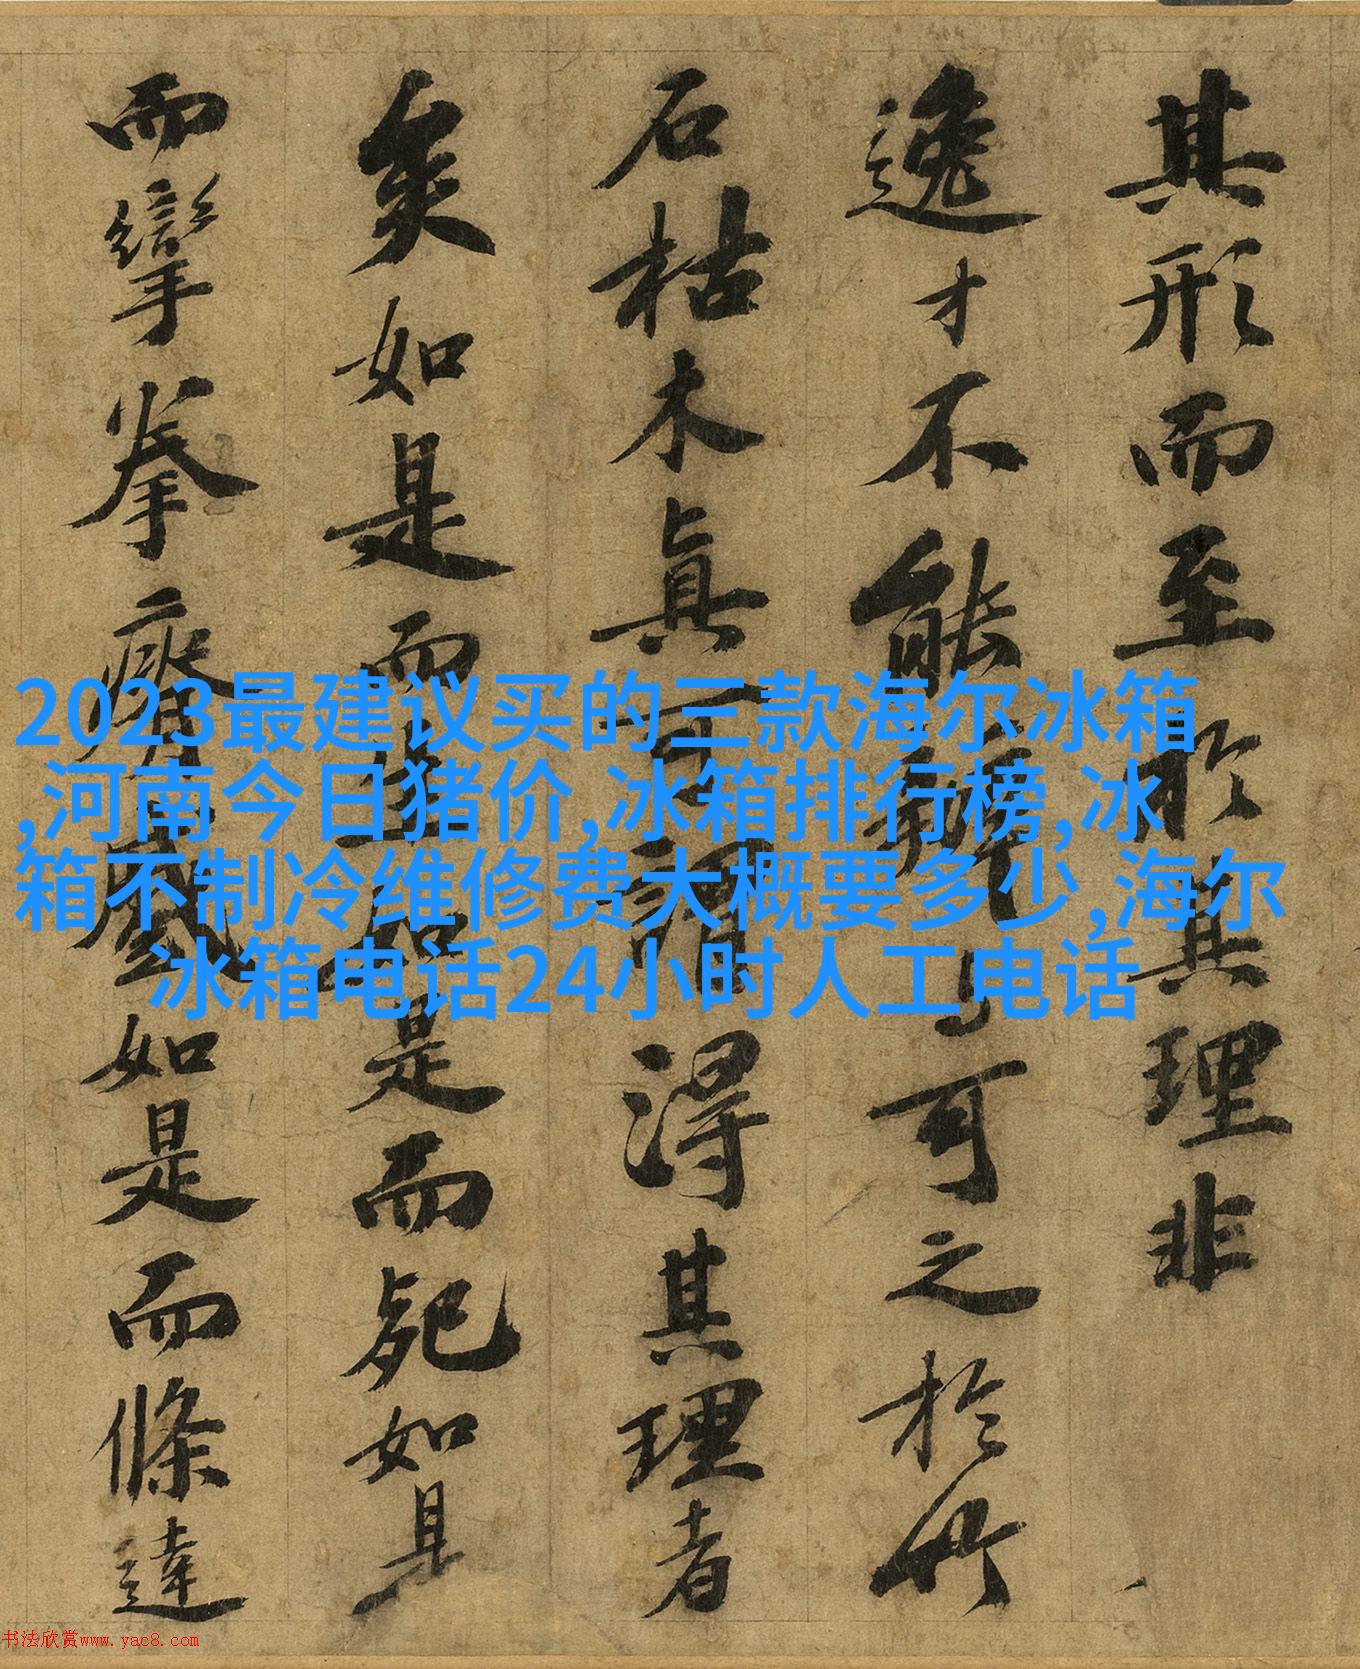 其形而至於其理非
逸才不能辨与可之於竹
石枯木真可謂得其理者
矣如是而生如是而死如是
而攣拳瘠蹙如是而條達
2023最建议买的三款海尔冰箱
,河南今日猪价,冰箱排行榜,冰
箱不制冷维修费大概要多少,海尔
冰箱电话24小时人工电话
书法欣赏www.yac8.com